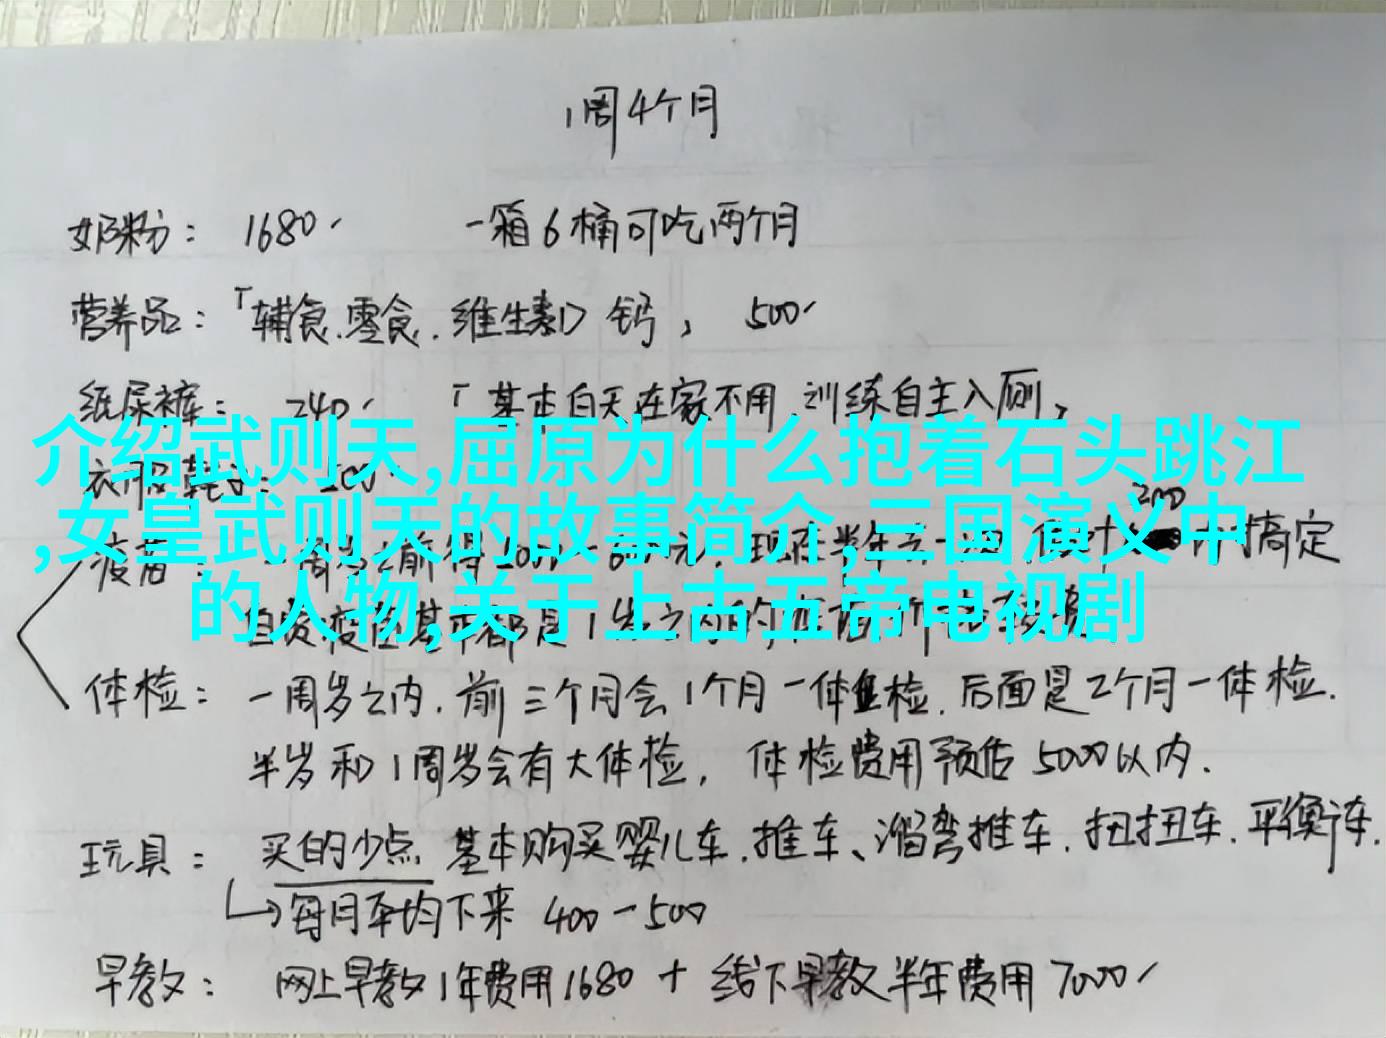 1周4个月
奶粉: 1680 一箱6桶可吃两个月
营养品:「辅食.零食.维生素D 钙, 500
纸尿裤: 240 「基本白天在家不用.训练自主入厕,
介绍武则天,屈原为什么抱着石头跳江
衣服鞋子:
,女皇武则天的故事简介,三国演义中
疫苗: 搞定
的人物,关于上古五帝电视剧
体检: 一周岁之内.前三个月会1个月一体检.后面是2个月一体检.
半岁和1周岁会有大体检, 体检费用预估5000以内.
玩具: 买的少点 基本购买婴儿车.推车、溜弯推车.扭扭车.平衡车.
每月平均下来 400-500
早教: 网上早教1年费用1680 + 线下早教半年费用7000